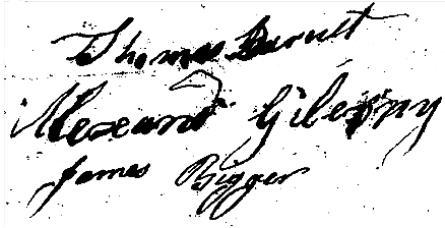 Thomas Barnet
Alexand Gilespy
James Bigger